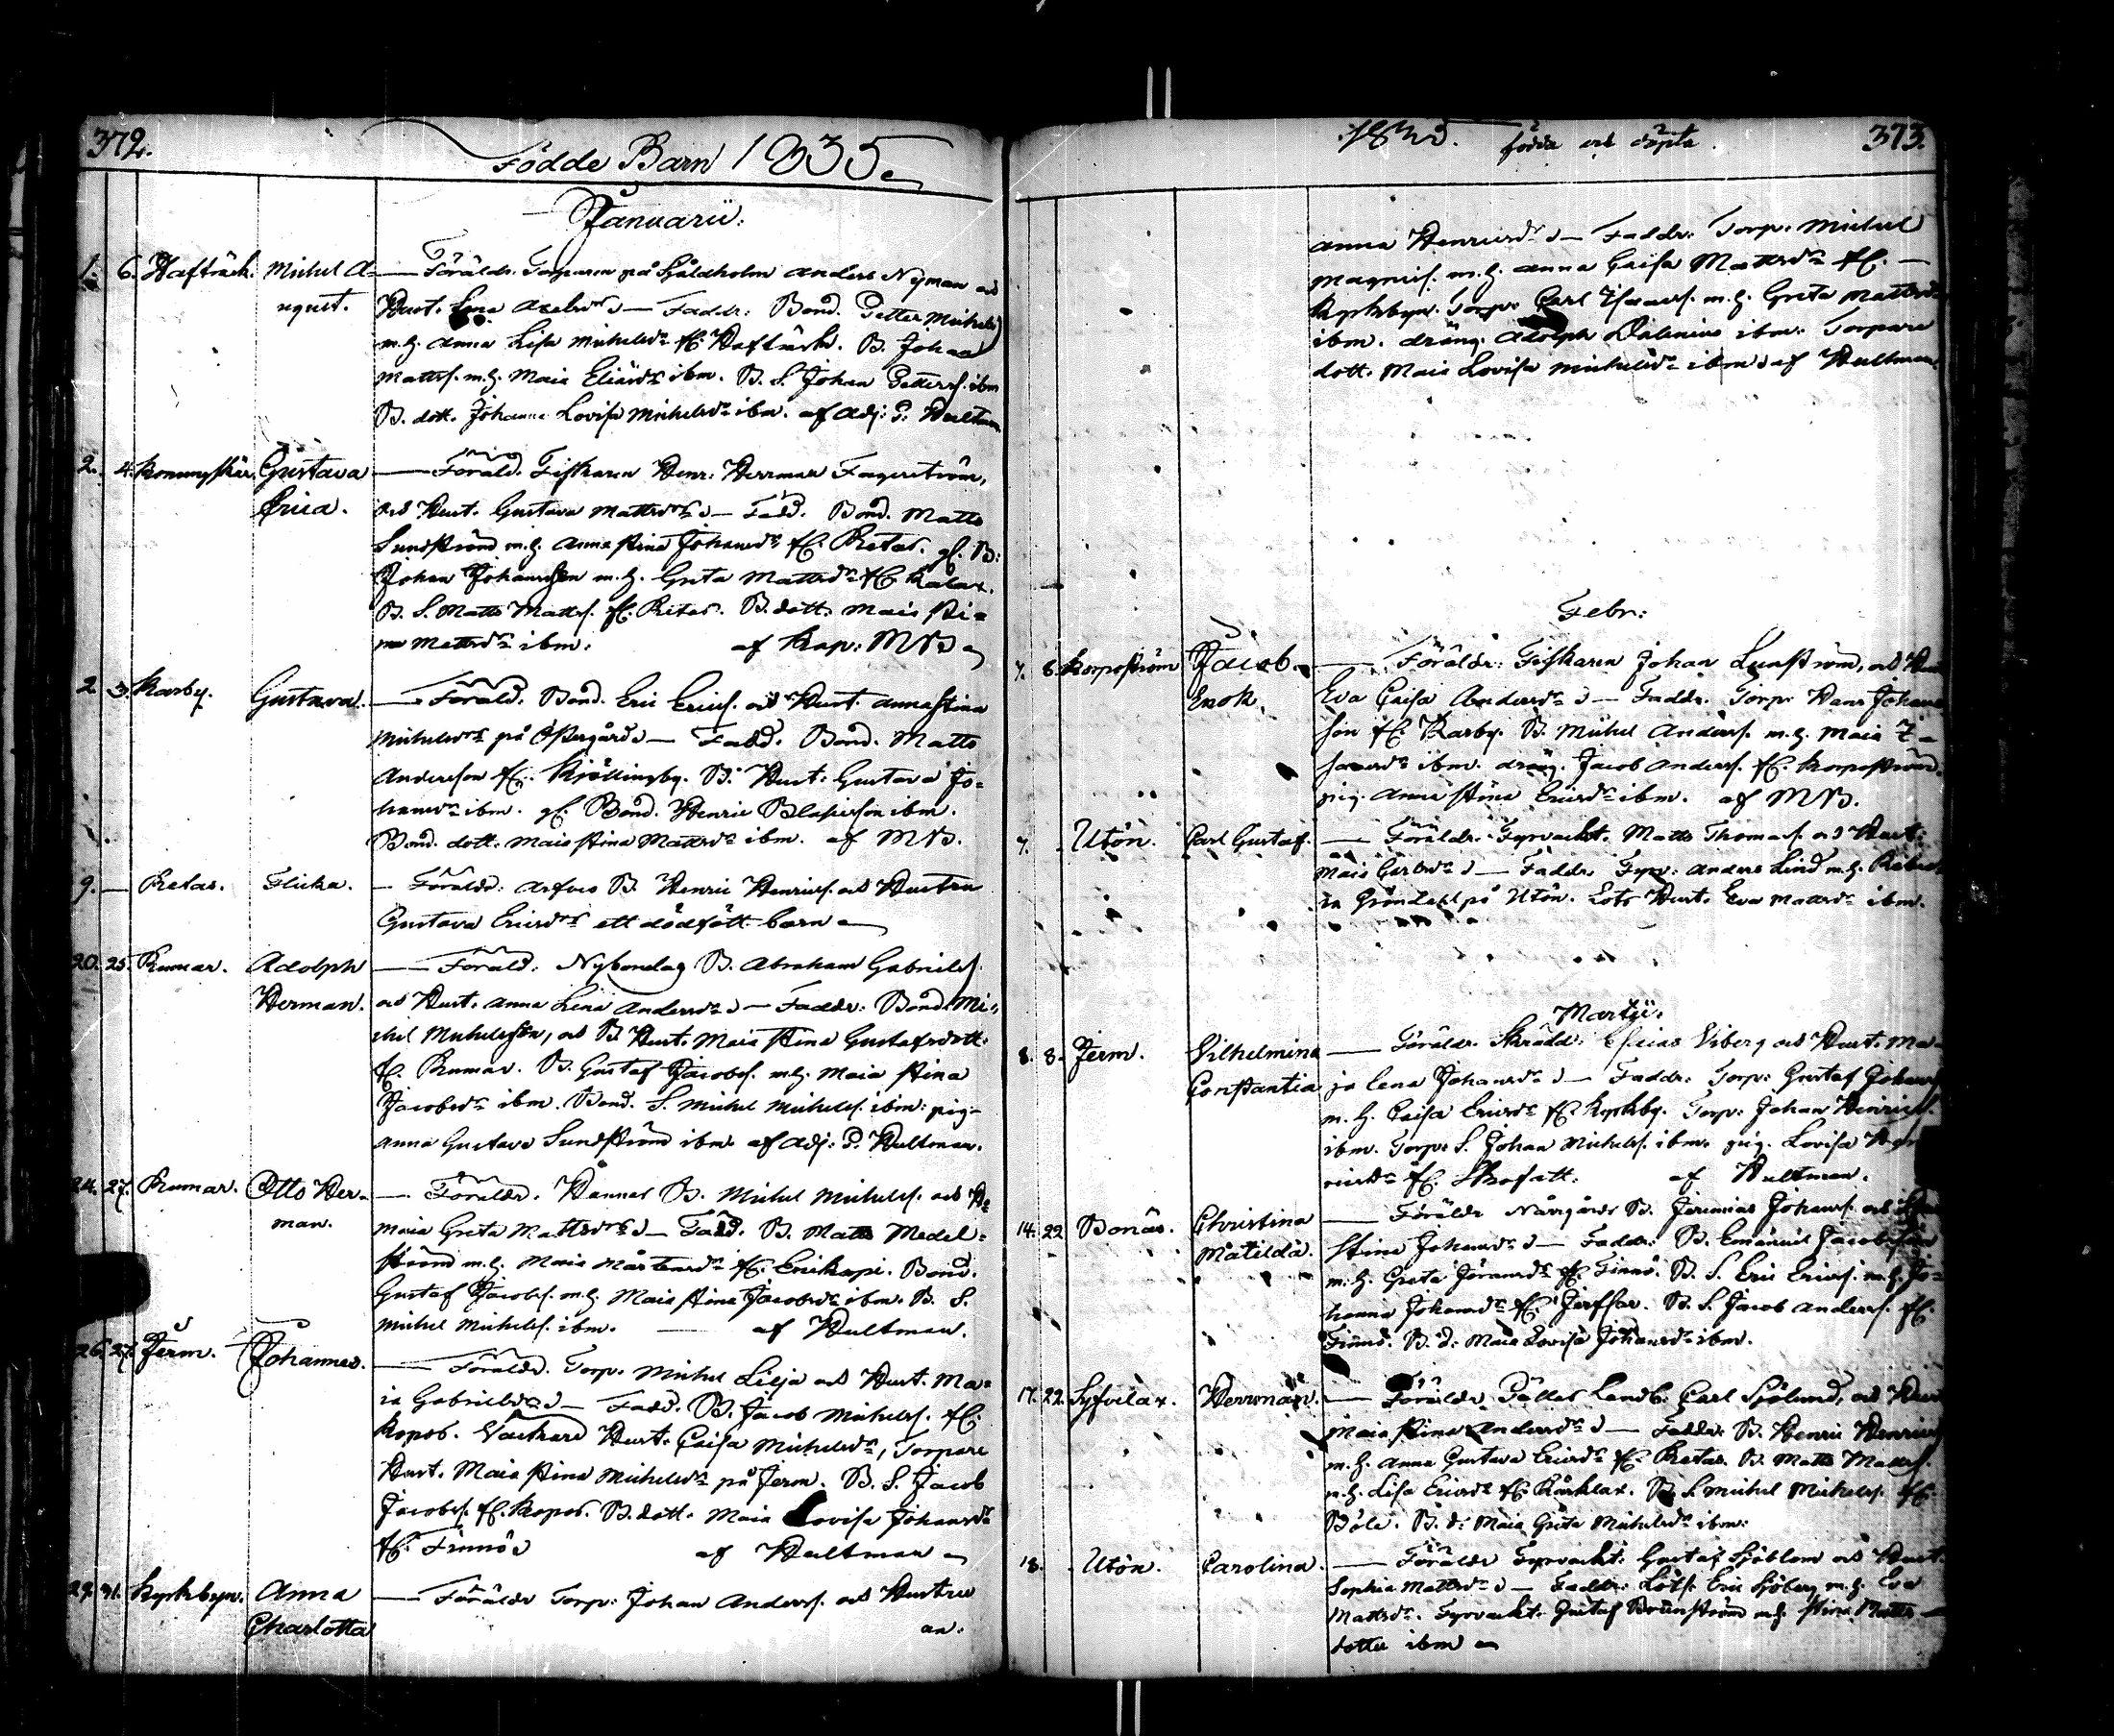 372.
Födde Barn 1835.
Januarii:
1. 6. Hafträsk. Michel A- — Föräldr. Torparen på Sjåldholm Anders Nyman och
ugust. Hust. Lena Axelsdr — Faddr: Bond. Petter Michels
m.h. Anna Lisa Michelsdr fr. Hafträsk. B. Johan
Matts. m.h. Maia Eliasdr ibm. B. S. Johan Petters. ibm
B. dott. Johanna Lovisa Michelsdr ibm. af Adj: P: Hultman
2. 4. Konungskär. Gustava — Föräld. Fiskaren Henr: Herrman Fagerström,
Erica. och Hust. Gustava Mattsdr — Fadd. Bond. Matts
Sundström m.h. Anna Stina Johansdr fr. Retas. gl. B:
Johan Johansson m.h. Greta Mattsdr fr. Kalax.
B. S. Matts Matts. fr. Retas. B. dott. Maia Sti-
na Mattsdr ibm: af Kap: MB
2. 3. Karby. Gustava. — Föräld. Bond. Eric Erics. och Hust. Anna Stina
Michelsdr på Östergård — Fadd. Bond. Matts
Andersson fr. Kjällingby. B. Hust: Gustava Jo-
hansdr ibm. gl. Bond. Henric Blasieson ibm.
Bond. dott. Maia Stina Mattsdr ibm. af MB.
9. — Retas. Flicka. — Föräldr: B. Henric Henrics. och Hustru
Gustava Ericsdr ett dödfött barn
20. 25. Rumar. Adolph — Föräld: Nybondas B. Abraham Gabriels.
Herman. och Hust. Anna Lena Andersdr — Faddr: Bond. Mi-
chel Michelsson, och B Hust. Maia Stina Gustafsdott.
fr. Rumar. B. Gustaf Jacobs. m.h. Maia Stina
Jacobsdr ibm. Bond. S. Michel Michels. ibm: pig-
Anna Gustava Sundström ibm. af Adj: P. Hultman.
24. 27. Rumar. Otto Her- — Föräldr. Hannas B. Michel Michels. och H:
man. Maia Greta Mattsdr — Fadd. B. Matts Medel-
ström m.h. Maia Mårtensdr fr. Bond.
Gustaf Jacobs. m.h. Maia Stina Jacobsdr ibm. B. S.
Michel Michels. ibm. — af Hultman.
26. 27. Jerm. Johannes. — Föräldr. Torp. Michel Lilja och Hust. Ma-
ia Gabrielsdr — Fadd. B. Jacob Michels. fr.
Kopos. Hust. Caisa Michelsdr, Torpare
Hust. Maia Stina Michelsdr på Jerm. B. S. Jacob
Jacobs. fr. Kopos. B. dott. Maia Lovisa Johansdr
fr. Finnö af Hultman
29. 31. Kyrkbyn. Anna — Föräldr Torp: Johan Anders. och Hustru
Charlotta an:
1835. födda och döpta. 373.
Anna Henricsdr — Faddr: Torp. Michel
Magnus. m.h. Anna Caisa Mattsdr fr. —
Kyrkbyn. Torp. Carl Isacs. m.h. Greta Mattsdr
ibm. dräng. Adolph Dalenius ibm: Torpare
dott. Maia Lovisa Michelsdr ibm af Hultman.
Febr:
7. 8. Korpoström Jacob — Föräldr: Fiskaren Johan Lunström, och Hu
Enok. Eva Caisa Andersdr — Faddr. Torp: Hans Johans
son fr. Karby. B. Michel Anders. m.h. Maia I-
sacsdr ibm. dräng. Jacob Anders. fr. Korpoström.
pig. Anna Stina Ericsdr ibm. af MB.
7. Utön. Carl Gustaf. — Föräldr. Fyrvackt. Matts Thomas. och Hust:
Maia Carlsdr — Faddr Fyrv: Anders Lind m.h. Rebec-
ca Gröndahl på Utön. Lots Hust. Eva Mattsdr ibm.
Martii.
8. 8. Jerm. Vilhelmina — Föräldr. Skrädd: Esaias Viberg och Hust. Ma-
Constantia ja Lena Johansdr — Faddr: Torp: Gustaf Johans
m.h. Caisa Ericsdr fr. Kyrkby. Torp: Johan Henrics.
ibm. Torp: S. Johan Michels. ibm. pig. Lovisa Hen
ricsdr fr. Skrofatt: af Hultman.
14. 22 Bonäs. Christina — Föräldr Norrgårds B. Jeremias Johans. och
Matilda. Stina Johansdr — Faddr: B. Emanuel Jacobsson
m.h. Greta Göransdr fr. Finnö. B. S. Eric Erics. m.h. Jo-
hanna Johansdr fr. Jerfsar. B. S. Jacob Anders. fr.
Finnö. B. d: Maia Lovisa Johansdr ibm.
17. 22. Syfvilax. Herrman. — Föräldr Pällas Landb: Carl Sjölund, och Hus
Maia Stina Andersdr — Faddr: B. Henric Henrics
m.h. Anna Gustava Ericsdr fr. Retas. B. Matts Matts.
m.h. Lisa Ericsdr fr. Kårklax. B. S. Michel Michels. fr.
Böle. B. d: Maia Greta Michelsdr ibm:
18. Utön. Carolina. — Föräldr Fyrvackt: Gustaf Sjöblom och Hust.
Sophia Mattsdr — Faddr: Lots. Eric Sjöberg m.h. Eva
Mattsdr. Fyrvackt. Gustaf Brunström m.h. Stina Matts-
dotter ibm